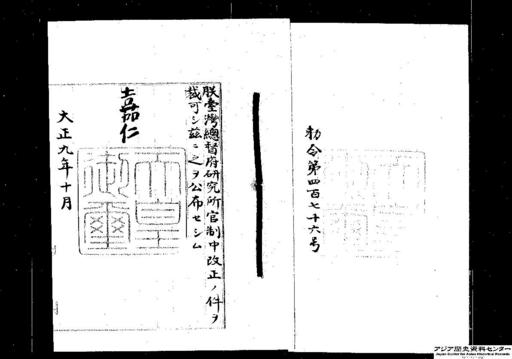 勅令第四百七十六号
朕臺灣總督府研究所官制中改正ノ件ヲ
裁可シ茲ニ之ヲ公布セシム
嘉仁
天皇
御璽
大正九年十月
アジア歴史資料センター
Japan Center for Asian Historical Records